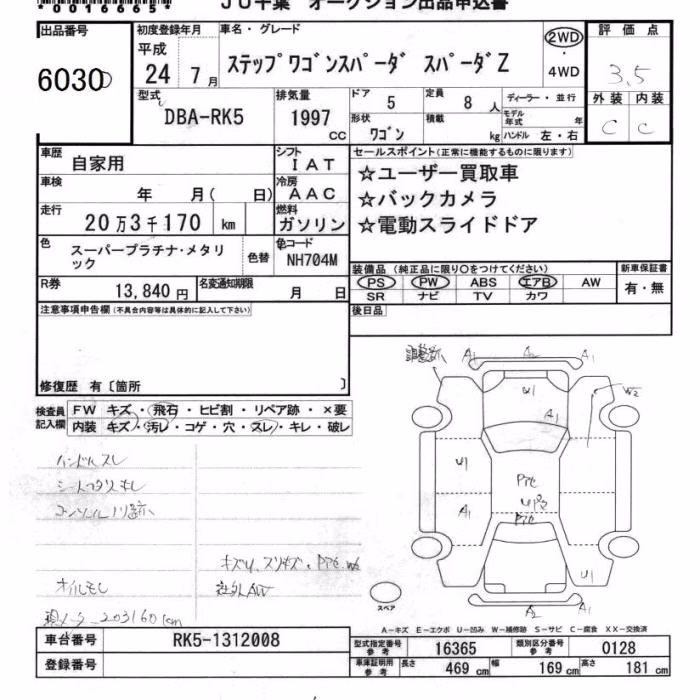 *0016665*
JU千葉 オークション出品申込書
出品番号 初度登録年月 車名・グレード 評価点
60300
平成
24 7月 ステップワゴンスパーダ スパーダZ 2WD・4WD 3.5
型式 排気量 ドア 5 定員 8人 ディーラー・並行 外装 内装
DBA-RK5 1997 cc 形状 ワゴン 積載 kg モデル年式 年 ハンドル 左・右 C C
車歴 自家用 シフト IAT セールスポイント(正常に機能するものに限ります)
車検 年 月( 日) 冷房 AAC ☆ユーザー買取車
☆バックカメラ
走行 20万3千170 km 燃料 ガソリン ☆電動スライドドア
色 スーパープラチナ・メタリック 色替 色コード NH704M
装備品(純正品に限り○をつけてください) 新車保証書
PS PW ABS エアB AW 有・無
SR ナビ TV カワ
R券 13,840円 名変通知期限 月 日
注意事項申告欄(不具合内容等は具体的に記入して下さい) 後日品
修復歴 有〔箇所 〕
検査員記入欄 FW キズ・飛石・ヒビ割・リペア跡・×要
内装 キズ・汚レ・コゲ・穴・スレ・キレ・破レ
調整跡 A1 A2 A1
U1 W2
A1
ハンドルスレ
U1
シートヘタリモレ
A1
コンソールノリ跡
オイルモレ
社外AW
U1
A2 A1
現メーター203160km
スペア
A−キズ E−エクボ U−凹み W−補修跡 S−サビ C−腐食 XX−交換済
車台番号 RK5-1312008 型式指定番号 参考 16365 類別区分番号 参考 0128
登録番号 車庫証明用 参考 長さ 469cm 幅 169cm 高さ 181cm